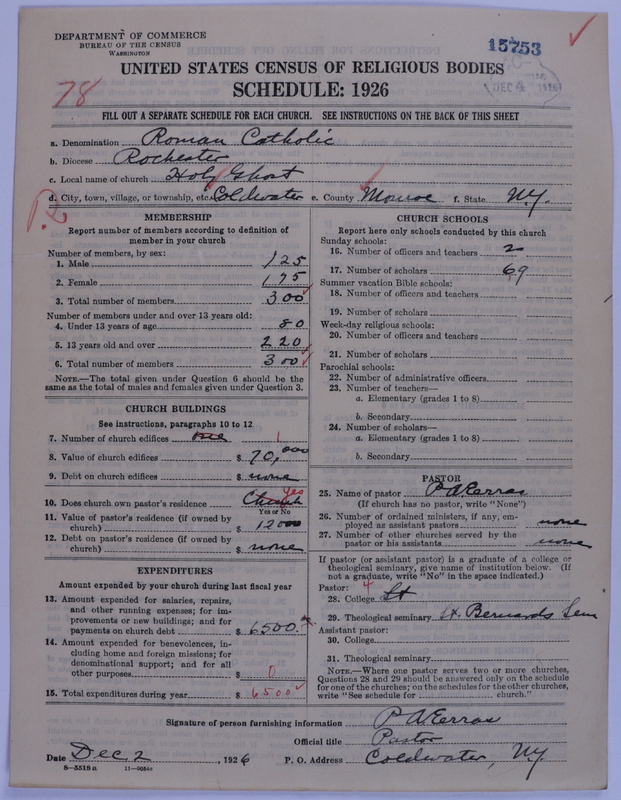 DEPARTMENT OF COMMERCE
BUREAU OF THE CENSUS
WASHINGTON
15753
DEC 4 1926
UNITED STATES CENSUS OF RELIGIOUS BODIES
SCHEDULE: 1926
78
FILL OUT A SEPARATE SCHEDULE FOR EACH CHURCH. SEE INSTRUCTIONS ON THE BACK OF THIS SHEET
a. Denomination Roman Catholic
b. Diocese Rochester
c. Local name of church Holy Ghost
d. City, town, village, or township, etc. Coldwater e. County Monroe f. State N.Y.
MEMBERSHIP
Report number of members according to definition of
member in your church
Number of members, by sex:
1. Male 125
2. Female 175
3. Total number of members 300
Number of members under and over 13 years old:
4. Under 13 years of age 80
5. 13 years old and over 220
6. Total number of members 300
NOTE.—The total given under Question 6 should be the
same as the total of males and females given under Question 3.
CHURCH BUILDINGS
See instructions, paragraphs 10 to 12
7. Number of church edifices one 1
8. Value of church edifices $ 70,000
9. Debt on church edifices $ none
10. Does church own pastor's residence Church Yes
Yes or No
11. Value of pastor's residence (if owned by
church) $ 12000
12. Debt on pastor's residence (if owned by
church) $ none
EXPENDITURES
Amount expended by your church during last fiscal year
13. Amount expended for salaries, repairs,
and other running expenses; for im-
provements or new buildings; and for
payments on church debt $ 6500.
14. Amount expended for benevolences, in-
cluding home and foreign missions; for
denominational support; and for all
other purposes $ 0
15. Total expenditures during year $ 6500
CHURCH SCHOOLS
Report here only schools conducted by this church
Sunday schools:
16. Number of officers and teachers 2
17. Number of scholars 69
Summer vacation Bible schools:
18. Number of officers and teachers
19. Number of scholars
Week-day religious schools:
20. Number of officers and teachers
21. Number of scholars
Parochial schools:
22. Number of administrative officers
23. Number of teachers—
a. Elementary (grades 1 to 8)
b. Secondary
24. Number of scholars—
a. Elementary (grades 1 to 8)
b. Secondary
PASTOR
25. Name of pastor P A
(If church has no pastor, write "None")
26. Number of ordained ministers, if any, em-
ployed as assistant pastors none
27. Number of other churches served by the
pastor or his assistants none
If pastor (or assistant pastor) is a graduate of a college or
theological seminary, give name of institution below. (If
not a graduate, write "No" in the space indicated.)
Pastor: 4
28. College St
29. Theological seminary St. Bernards Sem
Assistant pastor:
30. College
31. Theological seminary
NOTE.—Where one pastor serves two or more churches,
Questions 28 and 29 should be answered only on the schedule
for one of the churches; on the schedules for the other churches,
write "See schedule for church."
Signature of person furnishing information P A
Official title Pastor
Date Dec 2, 1926 P. O. Address Coldwater, N.Y.
8—5518a 11—9054a